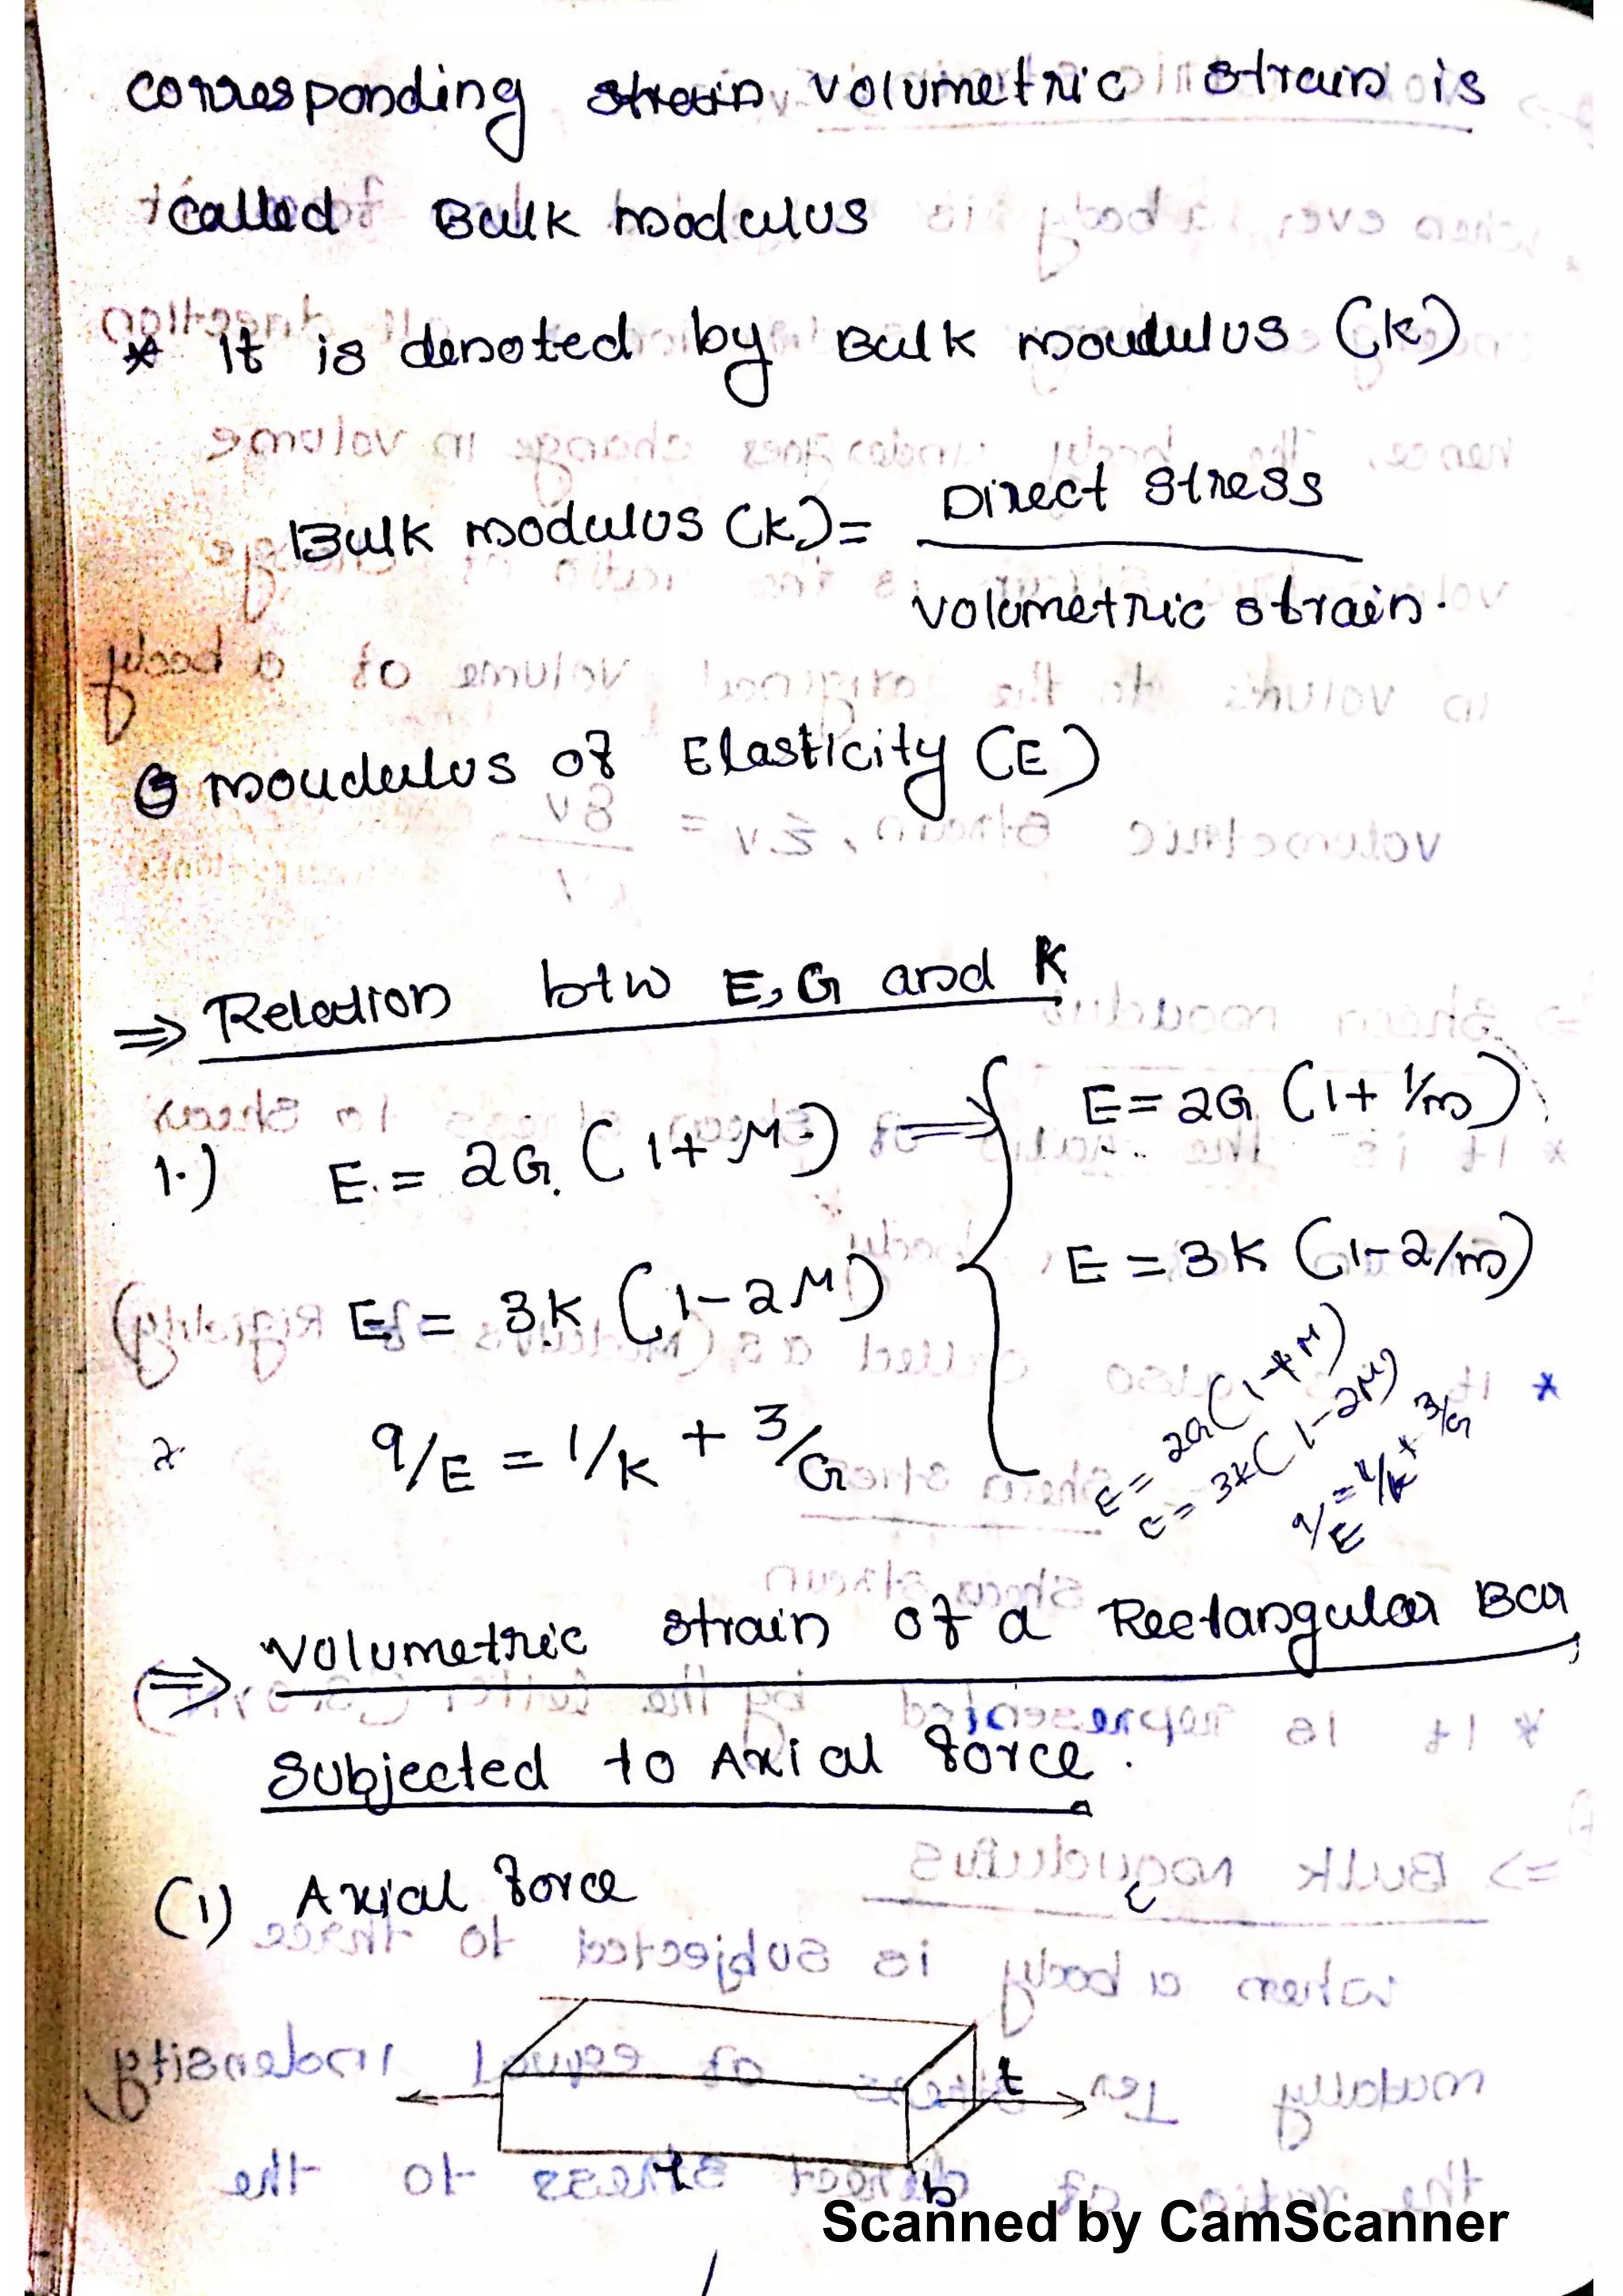 corresponding strain volumetric strain is
called Bulk modulus
* It is denoted by Bulk moudulus (K)
Bulk modulus (K) = Direct stress
volumetric strain.
moudulus of Elasticity (E)
⇒ Relation btw E, G and K
1.) E = 2G (1 + μ) ⇒ E = 2G (1 + 1/m)
E = 3K (1 - 2μ) E = 3K (1 - 2/m)
E = 2G (1 + μ)
E = 3K (1 - 2μ)
9/E = 1/K + 3/G
2. 9/E = 1/K + 3/G
⇒ Volumetric strain of a Rectangular Bar,
Subjected to Axial force.
(1) Axial force
t
l
b
Scanned by CamScanner